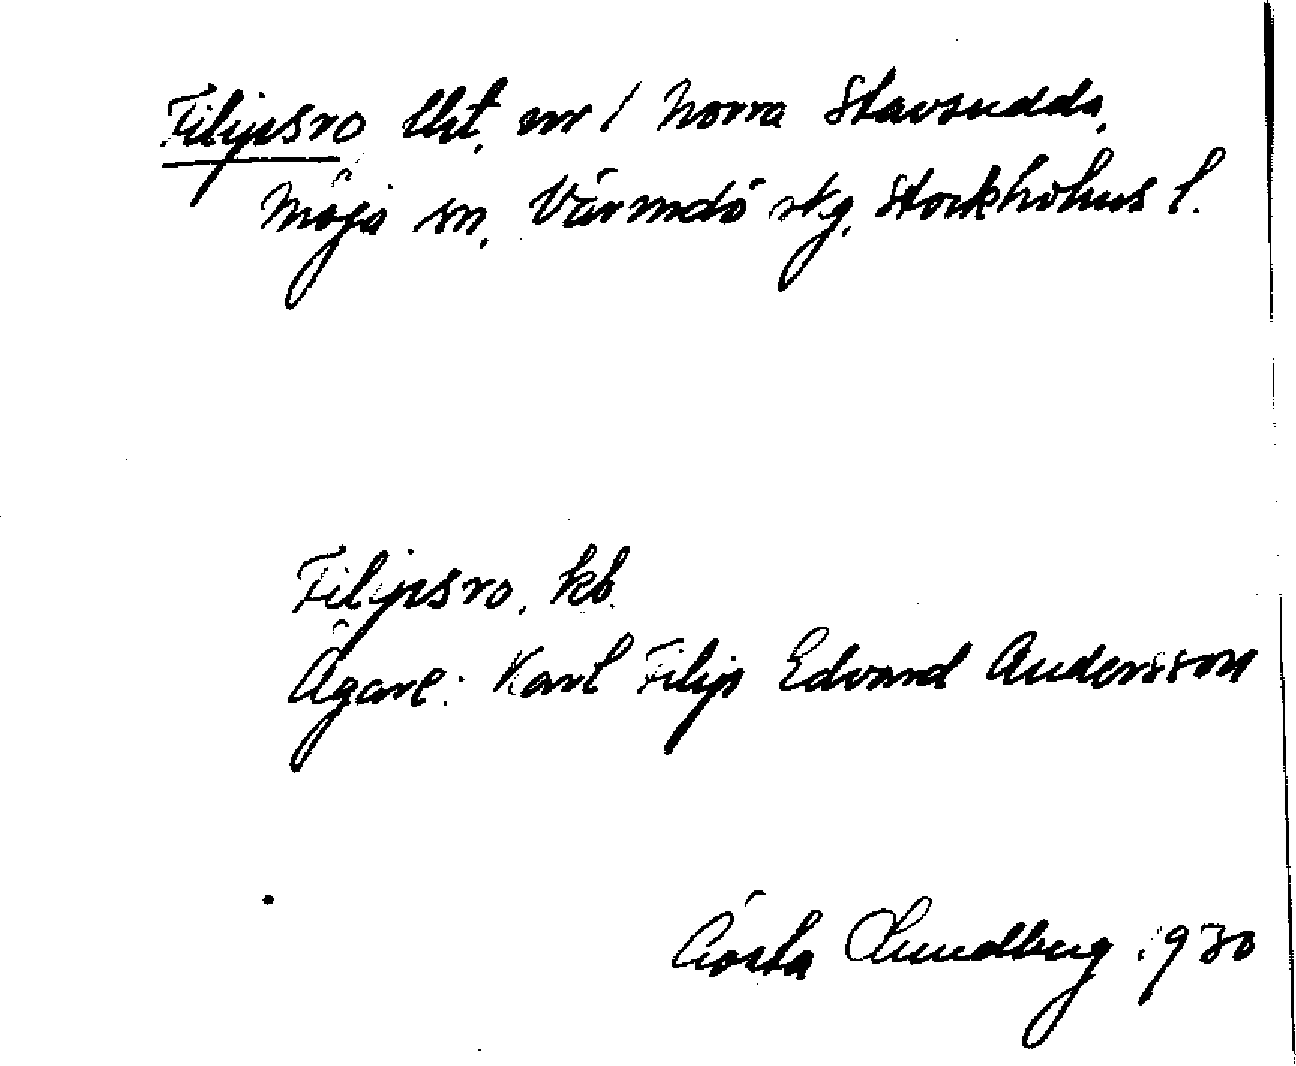 Filipsro lht, nr 1 Norra Stavsudda,
Möja sn, Värmdö skg, Stockholms l.
Filipsro, kb.
Ägare: Karl Filip Edvard Andersson
Gösta Lundberg 1930